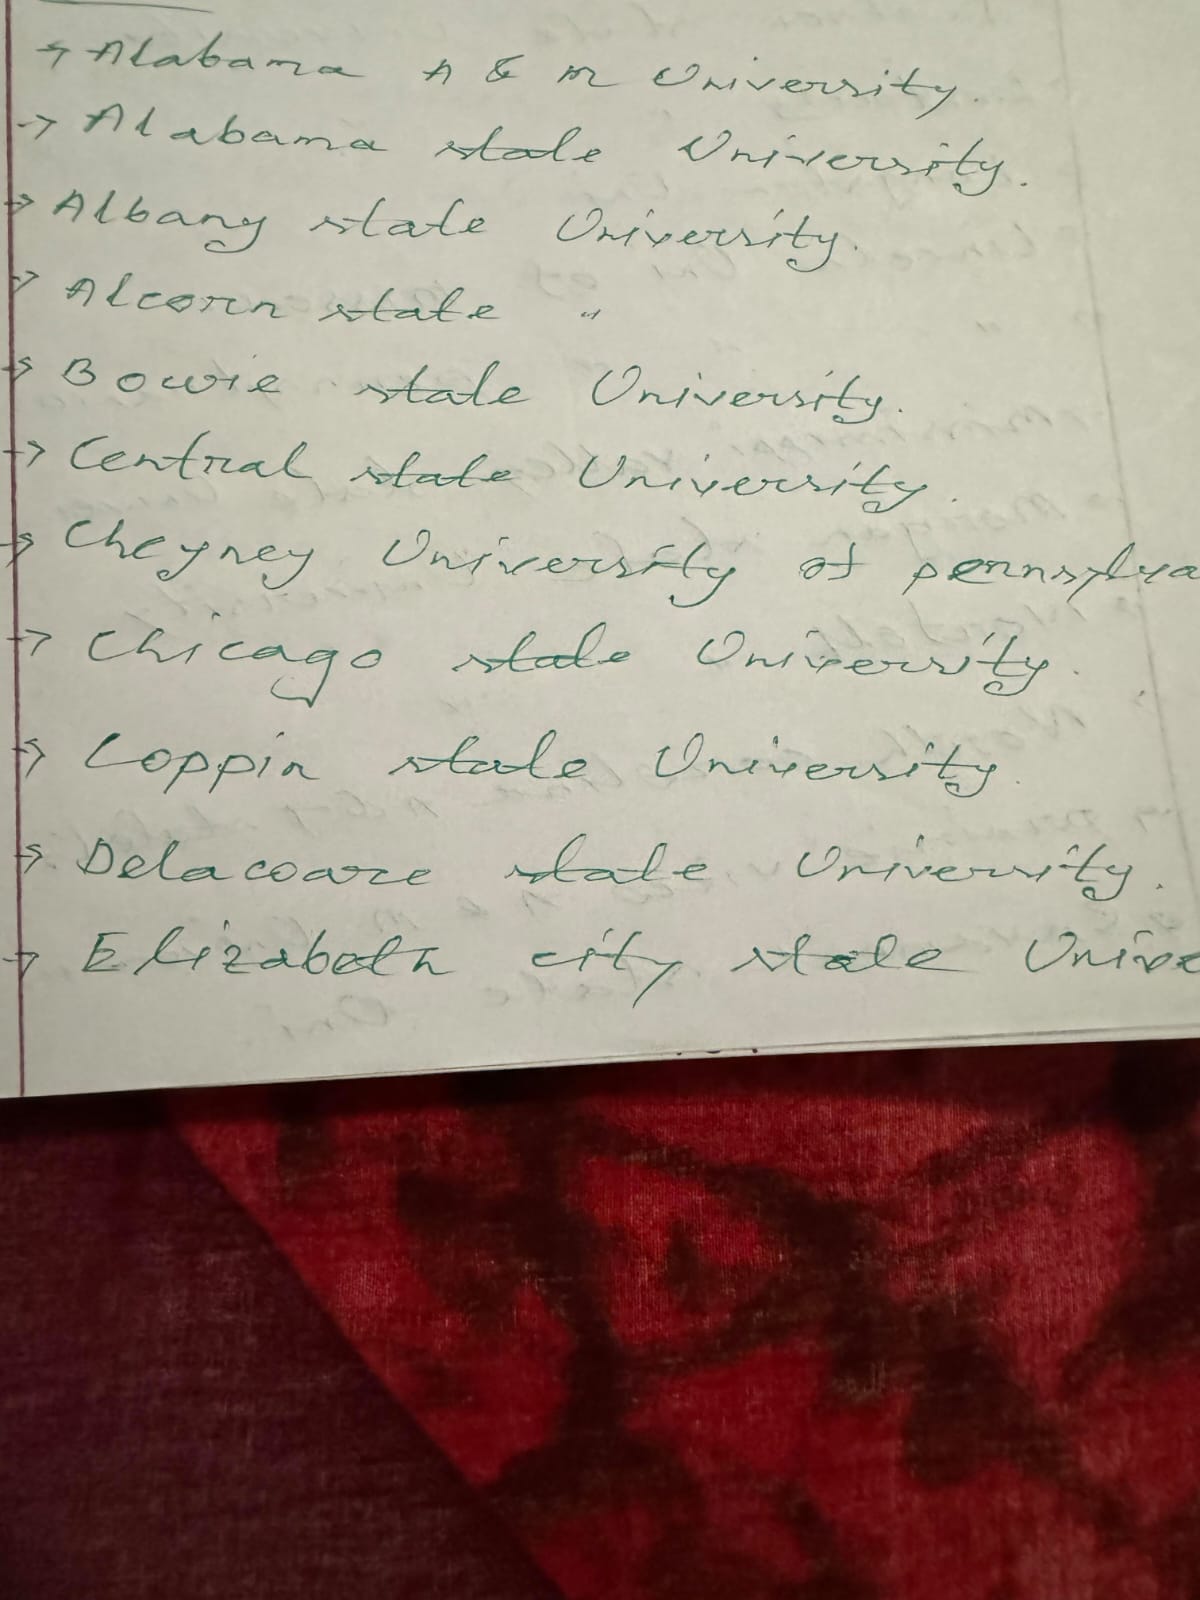 → Alabama A & M University.
→ Alabama state University.
→ Albany state University.
→ Alcorn state "
→ Bowie state University.
→ Central state University.
→ Cheyney University of pennsylva
→ Chicago state University.
→ Coppin state University.
→ Delaware state University.
→ Elizabeth city state Unive